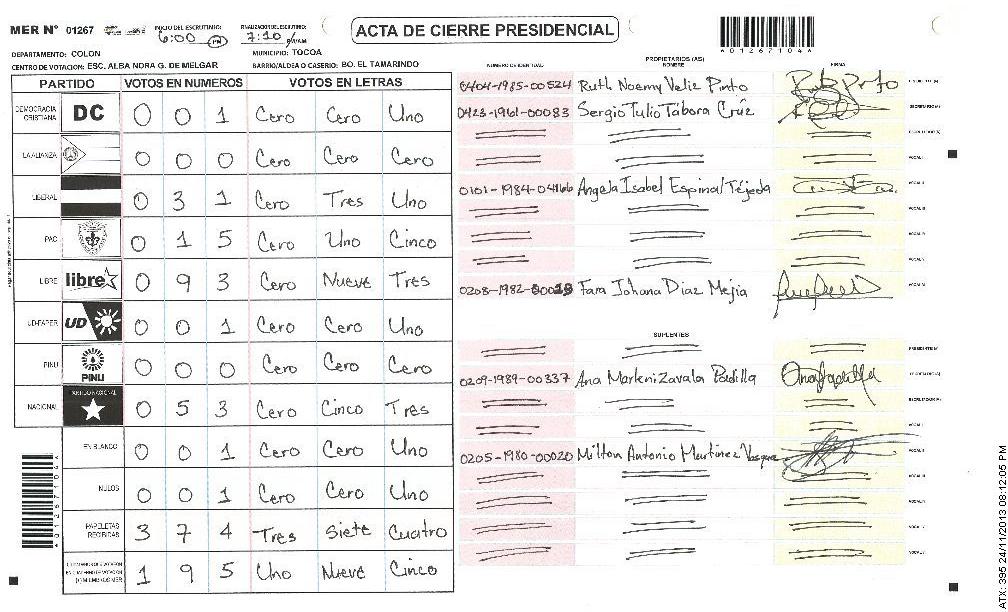 MER Nº 01267 INICIO DEL ESCRUTINIO: 6:00 PM FINALIZACION DEL ESCRUTINIO: 7:10
ACTA DE CIERRE PRESIDENCIAL
*01267104*
DEPARTAMENTO: COLON MUNICIPIO: TOCOA
CENTRO DE VOTACION: ESC. ALBA NORA G. DE MELGAR BARRIO/ALDEA O CASERIO: BO. EL TAMARINDO
PARTIDO VOTOS EN NUMEROS VOTOS EN LETRAS
DEMOCRACIA CRISTIANA DC 0 0 1 Cero Cero Uno
LA ALIANZA 0 0 0 Cero Cero Cero
LIBERAL 0 3 1 Cero Tres Uno
PAC 0 1 5 Cero Uno Cinco
LIBRE libre 0 9 3 Cero Nueve Tres
UD-FAPER UD 0 0 1 Cero Cero Uno
PINU PINU 0 0 0 Cero Cero Cero
NACIONAL PARTIDO NACIONAL 0 5 3 Cero Cinco Tres
EN BLANCO 0 0 1 Cero Cero Uno
NULOS 0 0 1 Cero Cero Uno
PAPELETAS RECIBIDAS 3 7 4 Tres Siete Cuatro
1 9 5 Uno Nueve Cinco
PROPIETARIOS (AS)
NUMERO DE IDENTIDAD NOMBRE FIRMA
0404-1985-00524 Ruth Noemy Veliz Pinto
0423-1961-00083 Sergio Tulio Tabora Crúz
0101-1984-04166 Angela Isabel Espinal Tejeda
0208-1982-00019 Fara Johana Diaz Mejia
SUPLENTES
0209-1989-00337 Ana Marleni Zavala Padilla
0205-1980-00020 Milton Antonio Martinez Vasquez
ATX: 395 24/11/2013 08:12:05 PM